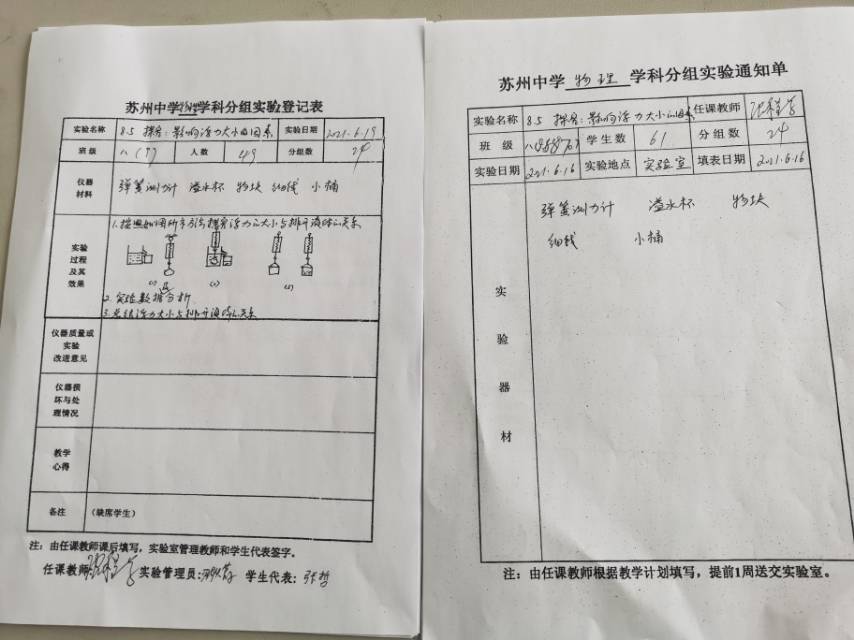 苏州中学物理学科分组实验登记表
实验名称 8.5 探究:影响浮力大小的因素 实验日期 2021.6.19
班级 八(7) 人数 49 分组数 24
仪器材料 弹簧测力计 溢水杯 物块 细线 小桶
实验过程及其效果
1.按照如图所示方法,探究浮力的大小与排开液体的关系
2.实验数据分析
3.总结浮力大小与排开液体的关系
仪器质量或实验改进意见
仪器损坏与处理情况
教学心得
备注 (缺席学生)
注:由任课教师课后填写,实验室管理教师和学生代表签字。
任课教师: 实验管理员: 学生代表:张哲
苏州中学 物理 学科分组实验通知单
实验名称 8.5 探究:影响浮力大小的因素 任课教师
班级 学生数 61 分组数 24
实验日期 2021.6.16 实验地点 实验室 填表日期 2021.6.16
实验器材
弹簧测力计 溢水杯 物块
细线 小桶
注:由任课教师根据教学计划填写,提前1周送交实验室。